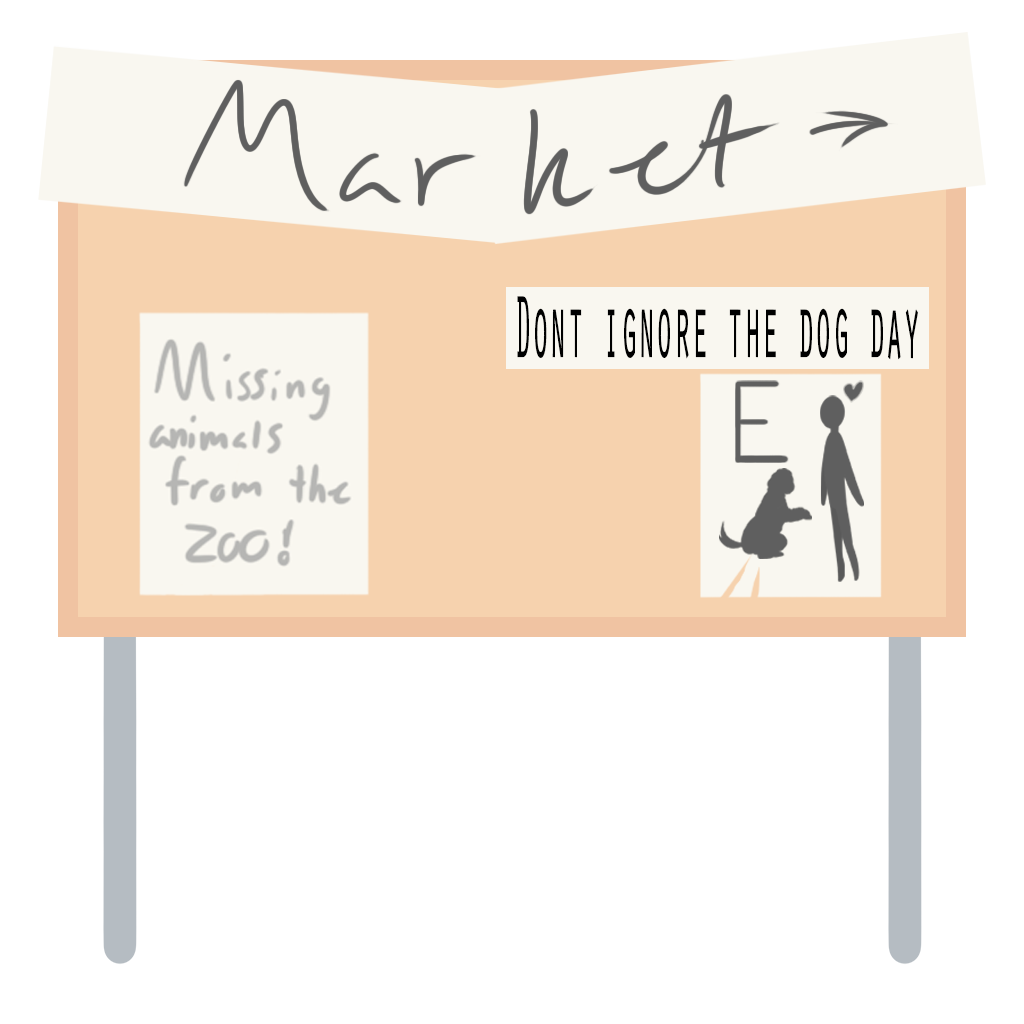 Market →
Missing
animals
from the
zoo!
DONT IGNORE THE DOG DAY
E